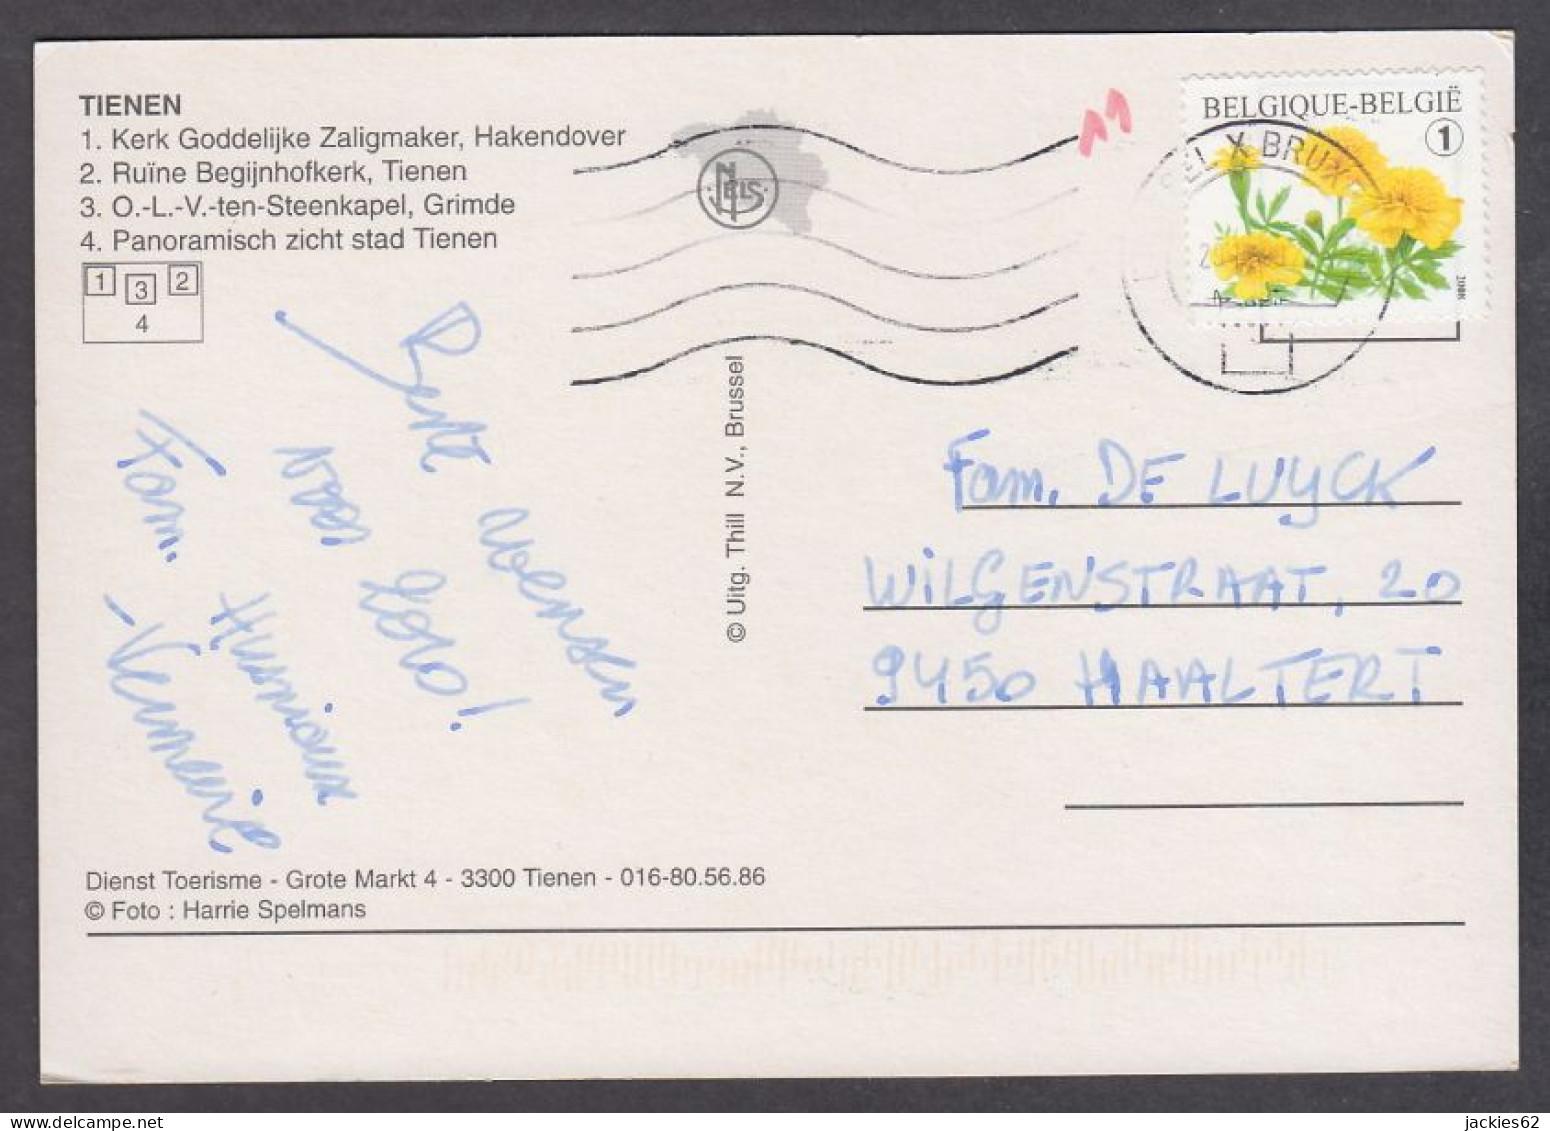 TIENEN
1. Kerk Goddelijke Zaligmaker, Hakendover
2. Ruïne Begijnhofkerk, Tienen
3. O.-L.-V.-ten-Steenkapel, Grimde
4. Panoramisch zicht stad Tienen
1 3 2
4
NELS
11
BELGIQUE-BELGIË
1
BRUX
2008
Beste wensen
voor 2010!
Fam.
- Vermeire
© Uitg. Thill N.V., Brussel
Fam. DE LUYCK
WILGENSTRAAT, 20
9450 HAALTERT
Dienst Toerisme - Grote Markt 4 - 3300 Tienen - 016-80.56.86
© Foto : Harrie Spelmans
jackies62